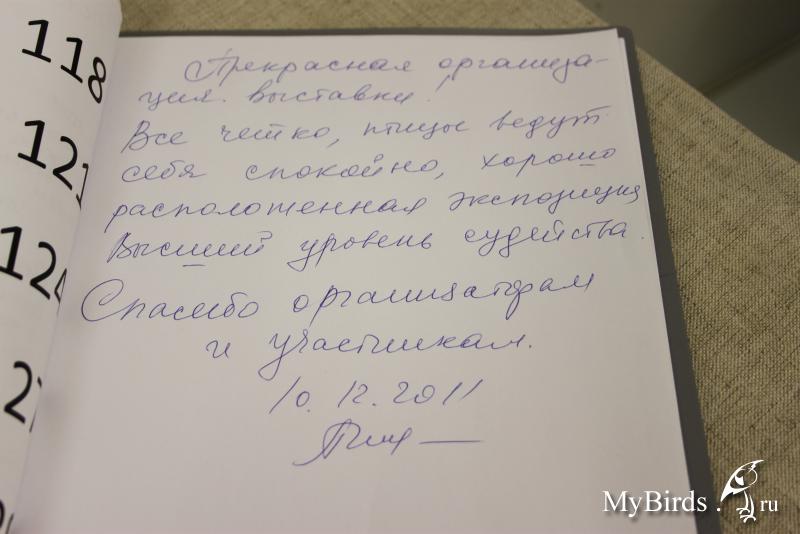 118
Прекрасная организа-
ция. выставки!
Все четко, птицы ведут
себя спокойно, хорошо
расположенная экспозиция
Высший уровень судейства.
Спасибо организаторам
и участникам.
10.12.2011
MyBirds.ru